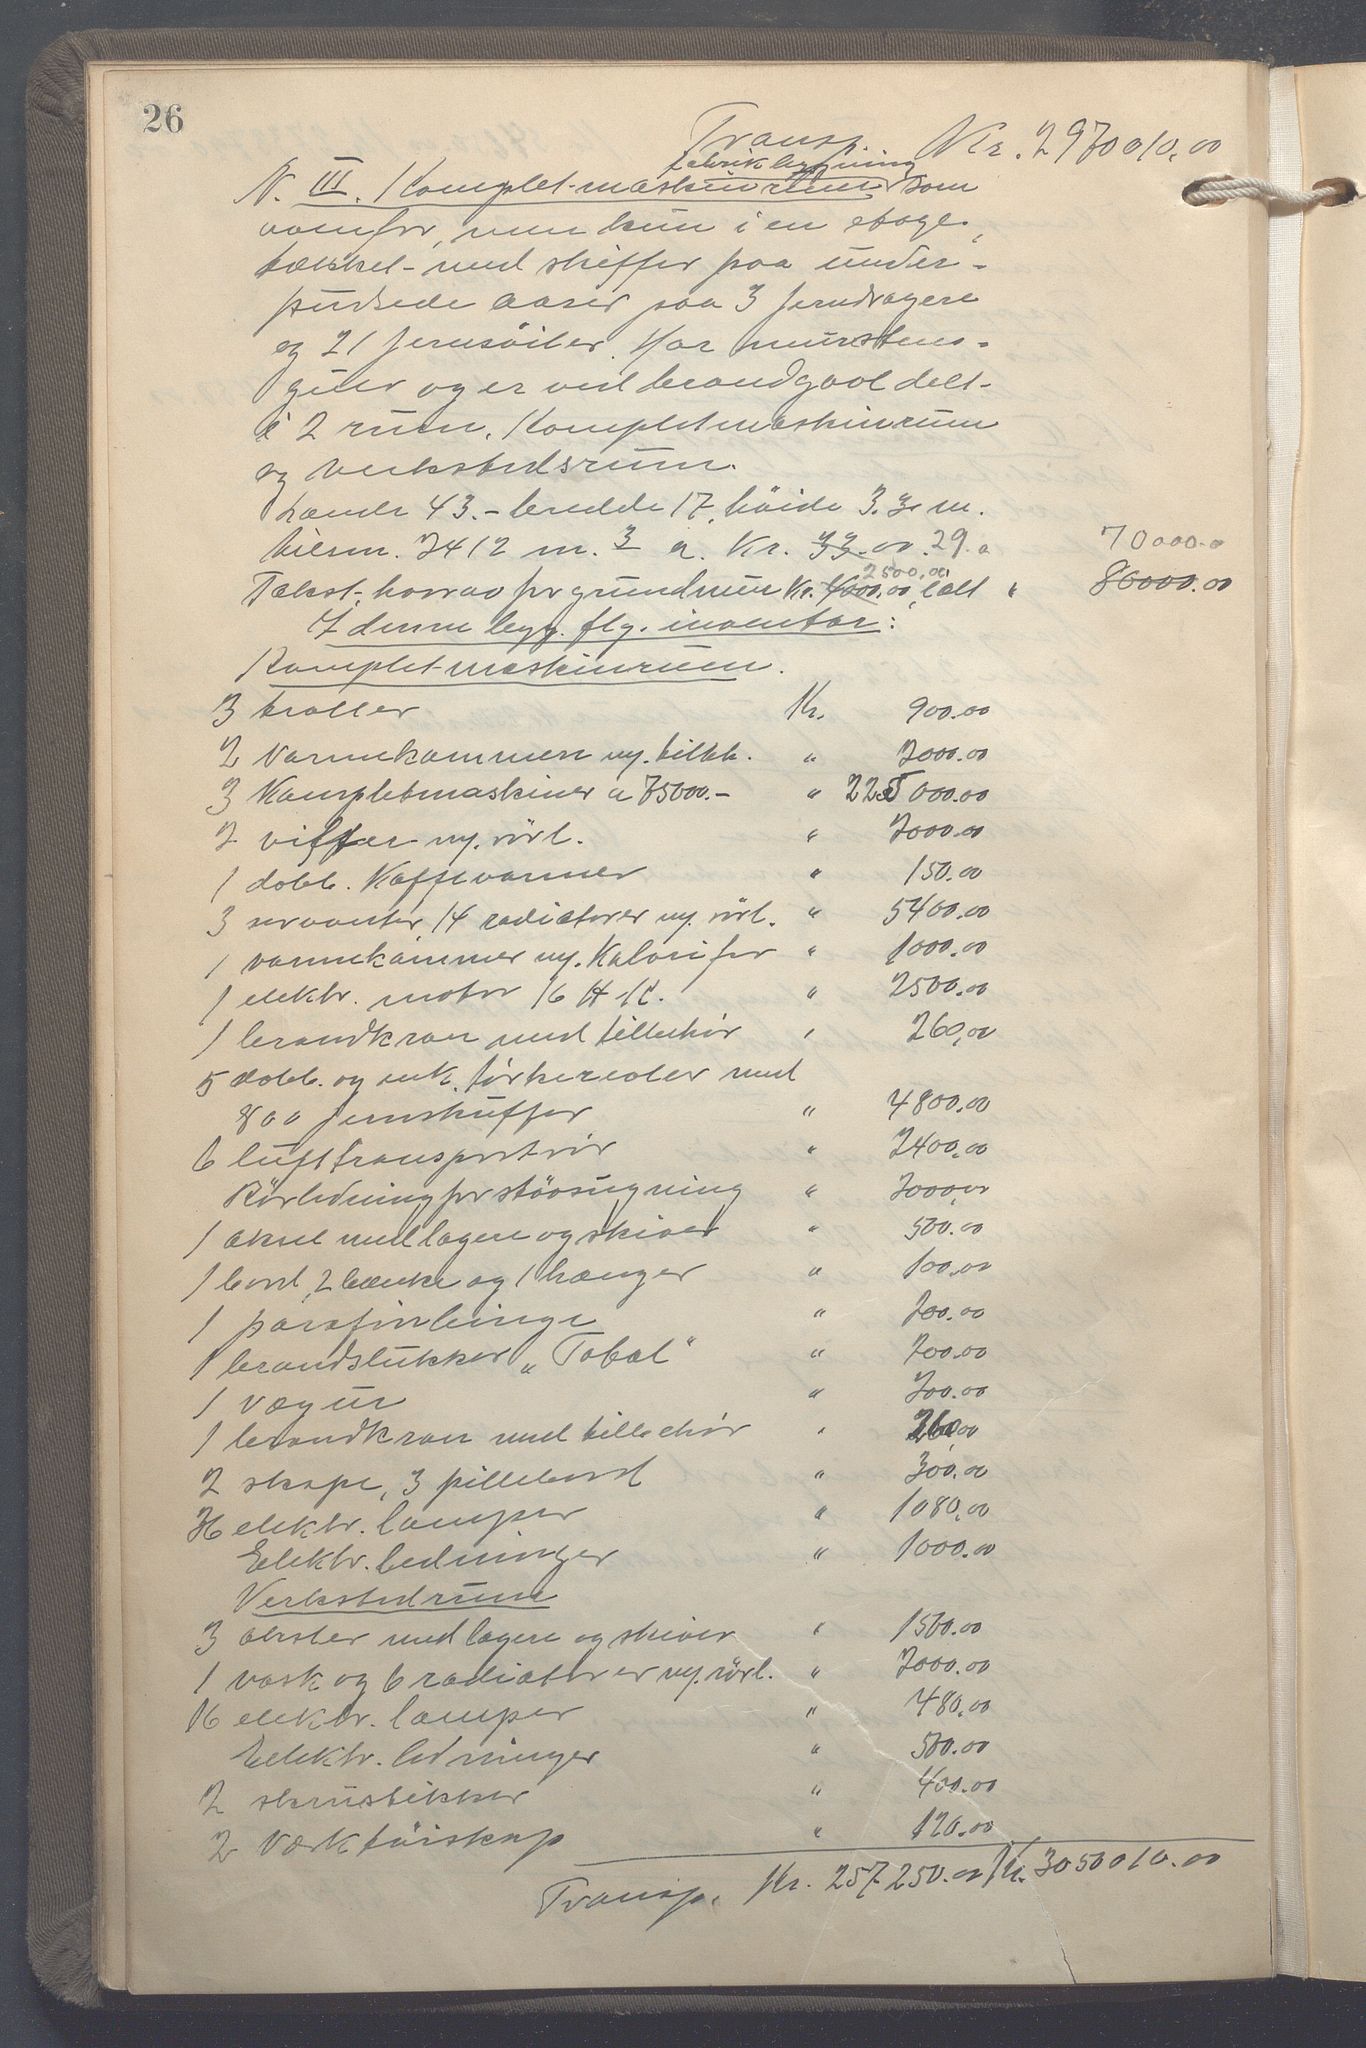 26
Transp. Kr. 2970010.00
fabrikbygning
N. III. Komplet-maskinrum, som
ovenfor, men kun i en etage,
tækket med skiffer paa under-
pudsede aaser paa 3 jerndragere
og 21 jernsöiler. Har murstens-
gulv og er ved brandgavl delt
i 2 rum, Kompletmaskinrum
og verkstedsrum.
Længde 43.- bredde 17, höide 3.30 m.
tilsm. 2412 m.3 a. Kr. 33.00 29.0 70000.0
2500.00
Takst, hvorav for grundmur Kr. 4000.00, ialt " 80000.00
I denne bygg. flg. inventar:
Kompletmaskinrum.
3 traller Kr. 900.00
2 varmekammere og. tilbh. " 2000.00
3 Kompletmaskiner a 75000.- " 225000.00
2 vifter og. rörl. " 2000.00
1 dobb. Kaffevarmer " 150.00
3 servanter, 14 radiatorer og. rörl. " 5400.00
1 varmekammer og. Kalorifer " 1000.00
1 elektr. motor 16 H.K. " 2500.00
1 brandkran med tilbehör " 260,00
5 dobb. og enk. törkereoler med
800 jernskuffer " 4800.00
6 lufttransportrör " 2400.00
Rörledning for stövsugning " 2000,00
1 aksel med lagere og skiver " 500.00
1 bord, 2 bænke og 1 hænger " 100.00
1 parafinbinge " 200.00
1 brandslukker „Total" " 200.00
1 vægur " 200.00
1 brandkran med tilbehör " 260.00
2 skape, 3 pillebord " 300.00
36 elektr. lamper " 1080,00
Elektr. ledninger " 1000.00
Verkstedrum
3 aksler med lagere og skiver " 1500.00
1 vask og 6 radiatorer og. rörl. " 2000.00
16 elektr. lamper " 480,00
Elektr. ledninger " 500.00
2 skrustikker " 400.00
2 Værktöiskap " 120.00
Transp. Kr. 257250.00 Kr. 3050010.00